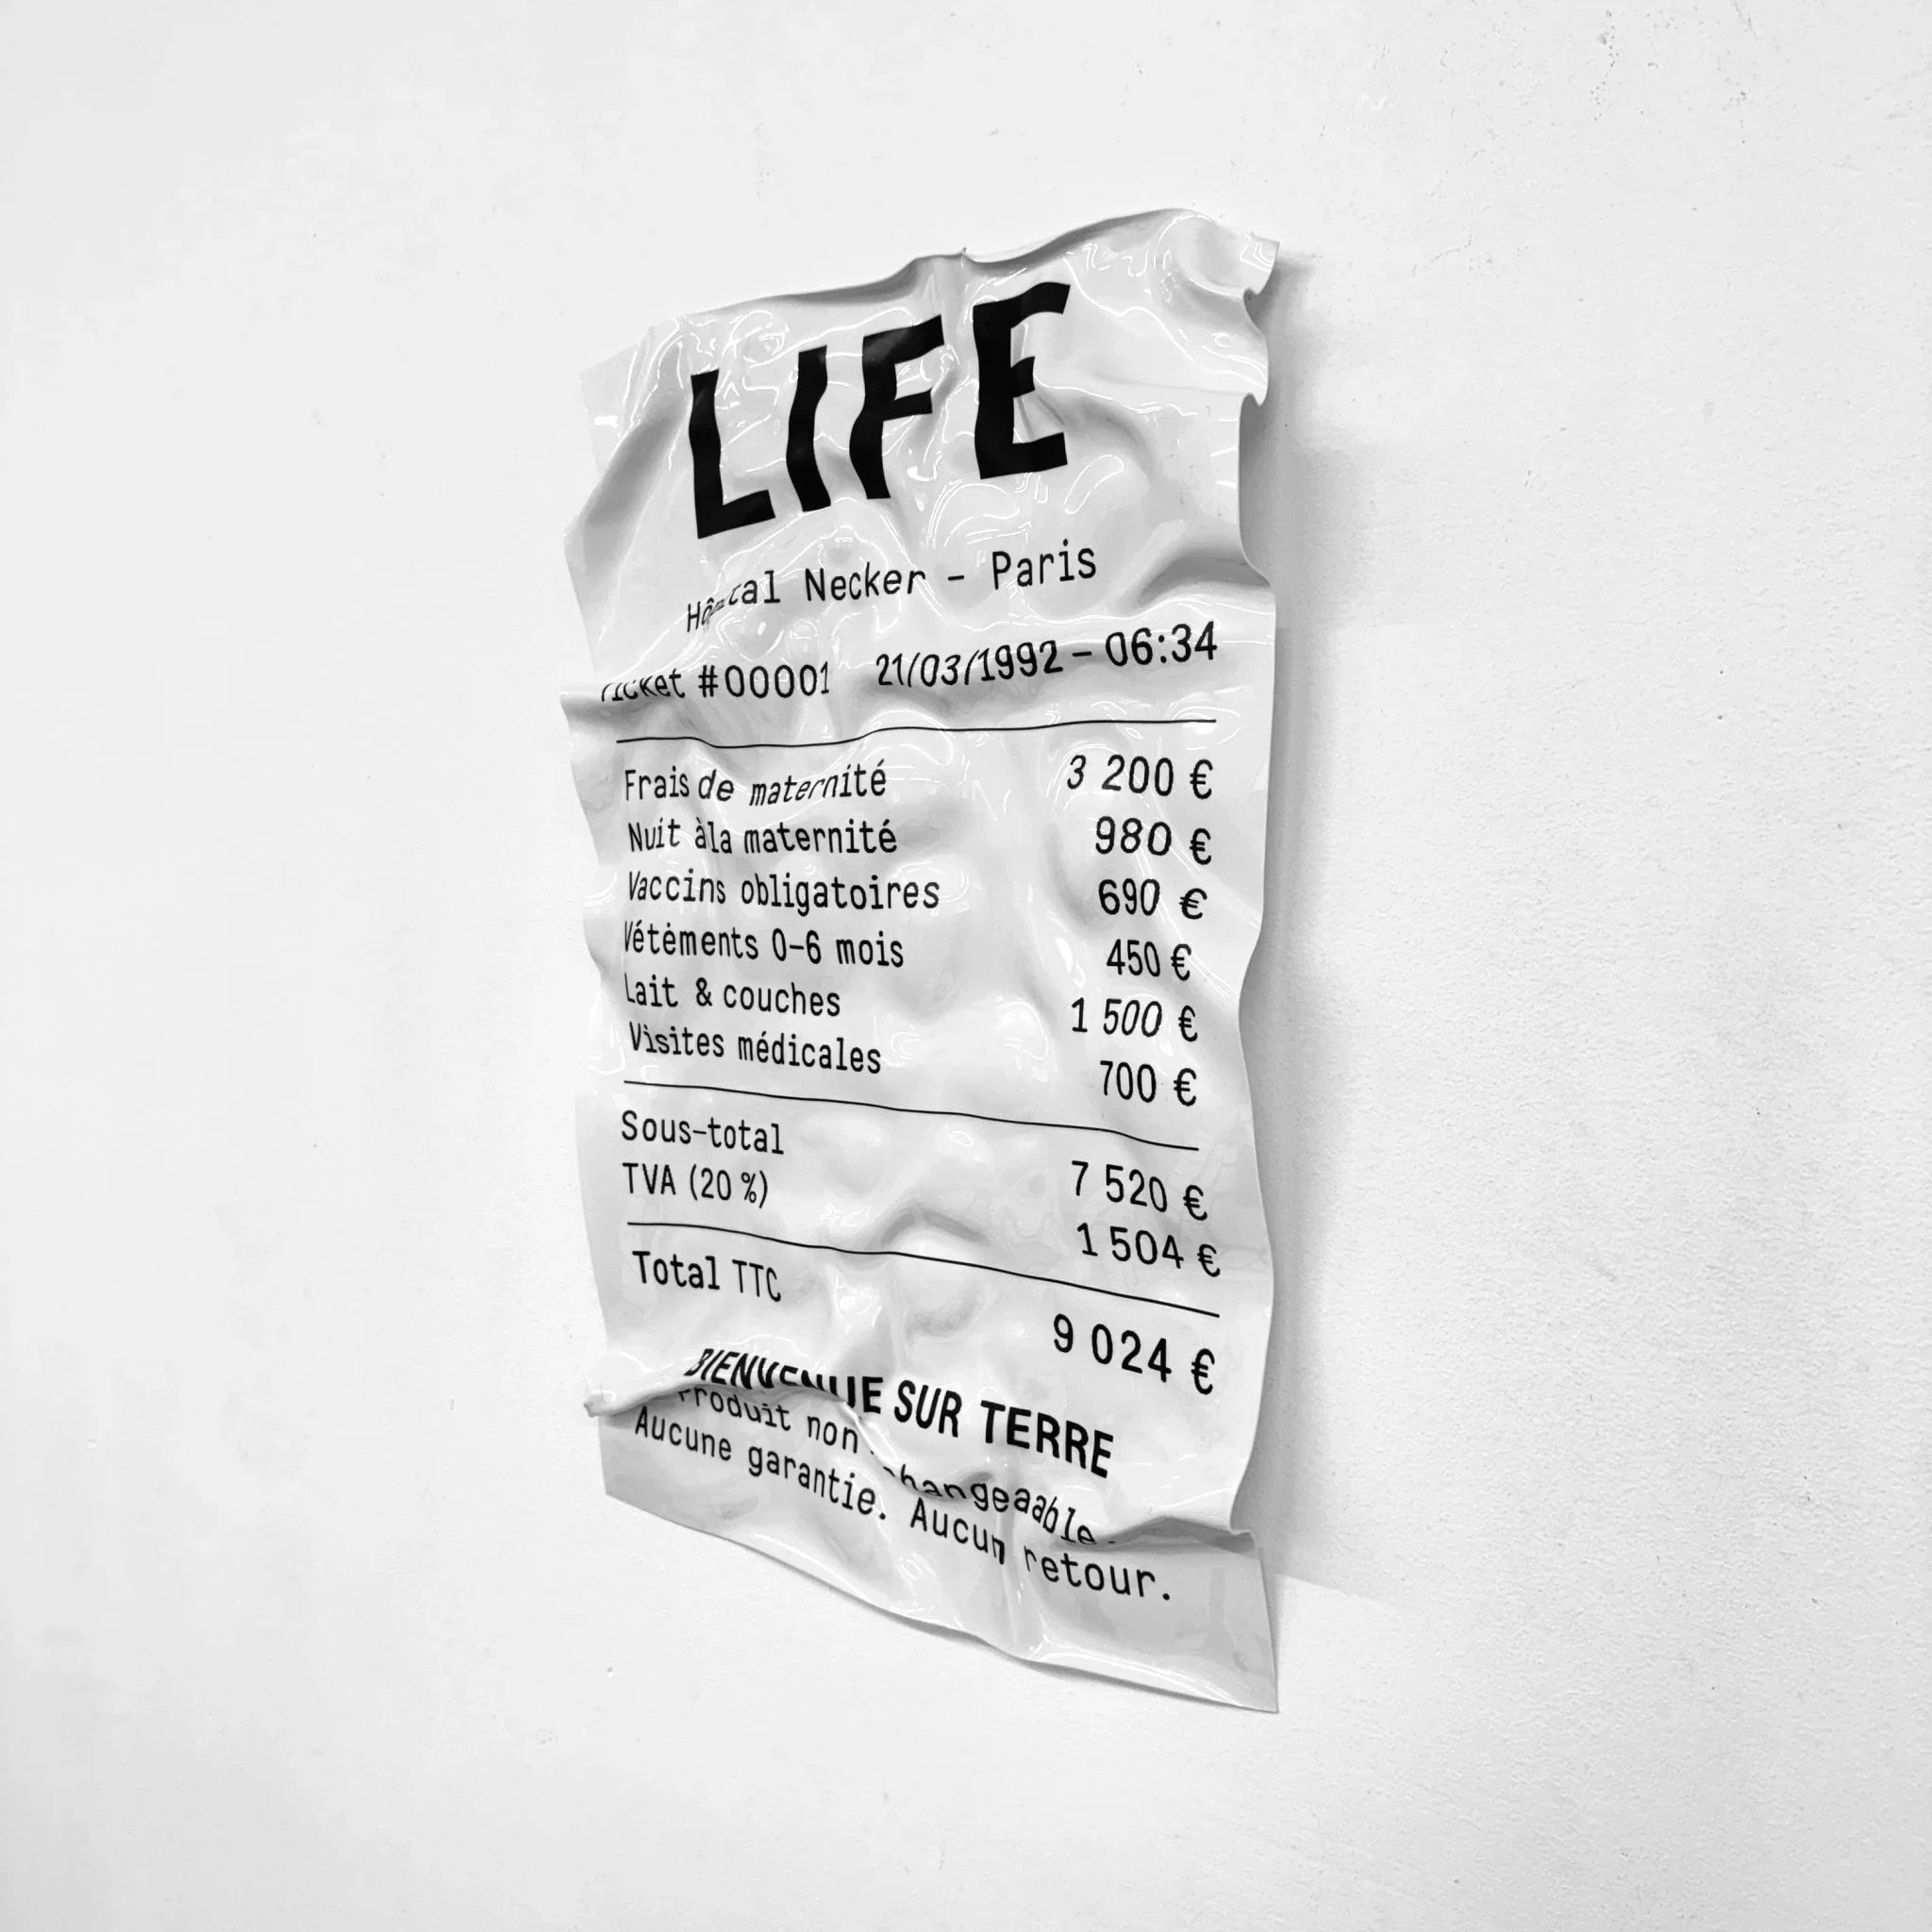 LIFE
Hôpital Necker - Paris
Ticket #00001 21/03/1992 - 06:34
Frais de maternité 3 200 €
Nuit à la maternité 980 €
Vaccins obligatoires 690 €
Vétėments 0-6 mois 450 €
Lait & couches 1 500 €
Visites médicales 700 €
Sous-total 7 520 €
TVA (20 %) 1 504 €
Total TTC 9 024 €
BIENVENUE SUR TERRE
Produit non changeaable.
Aucune garantie. Aucun retour.